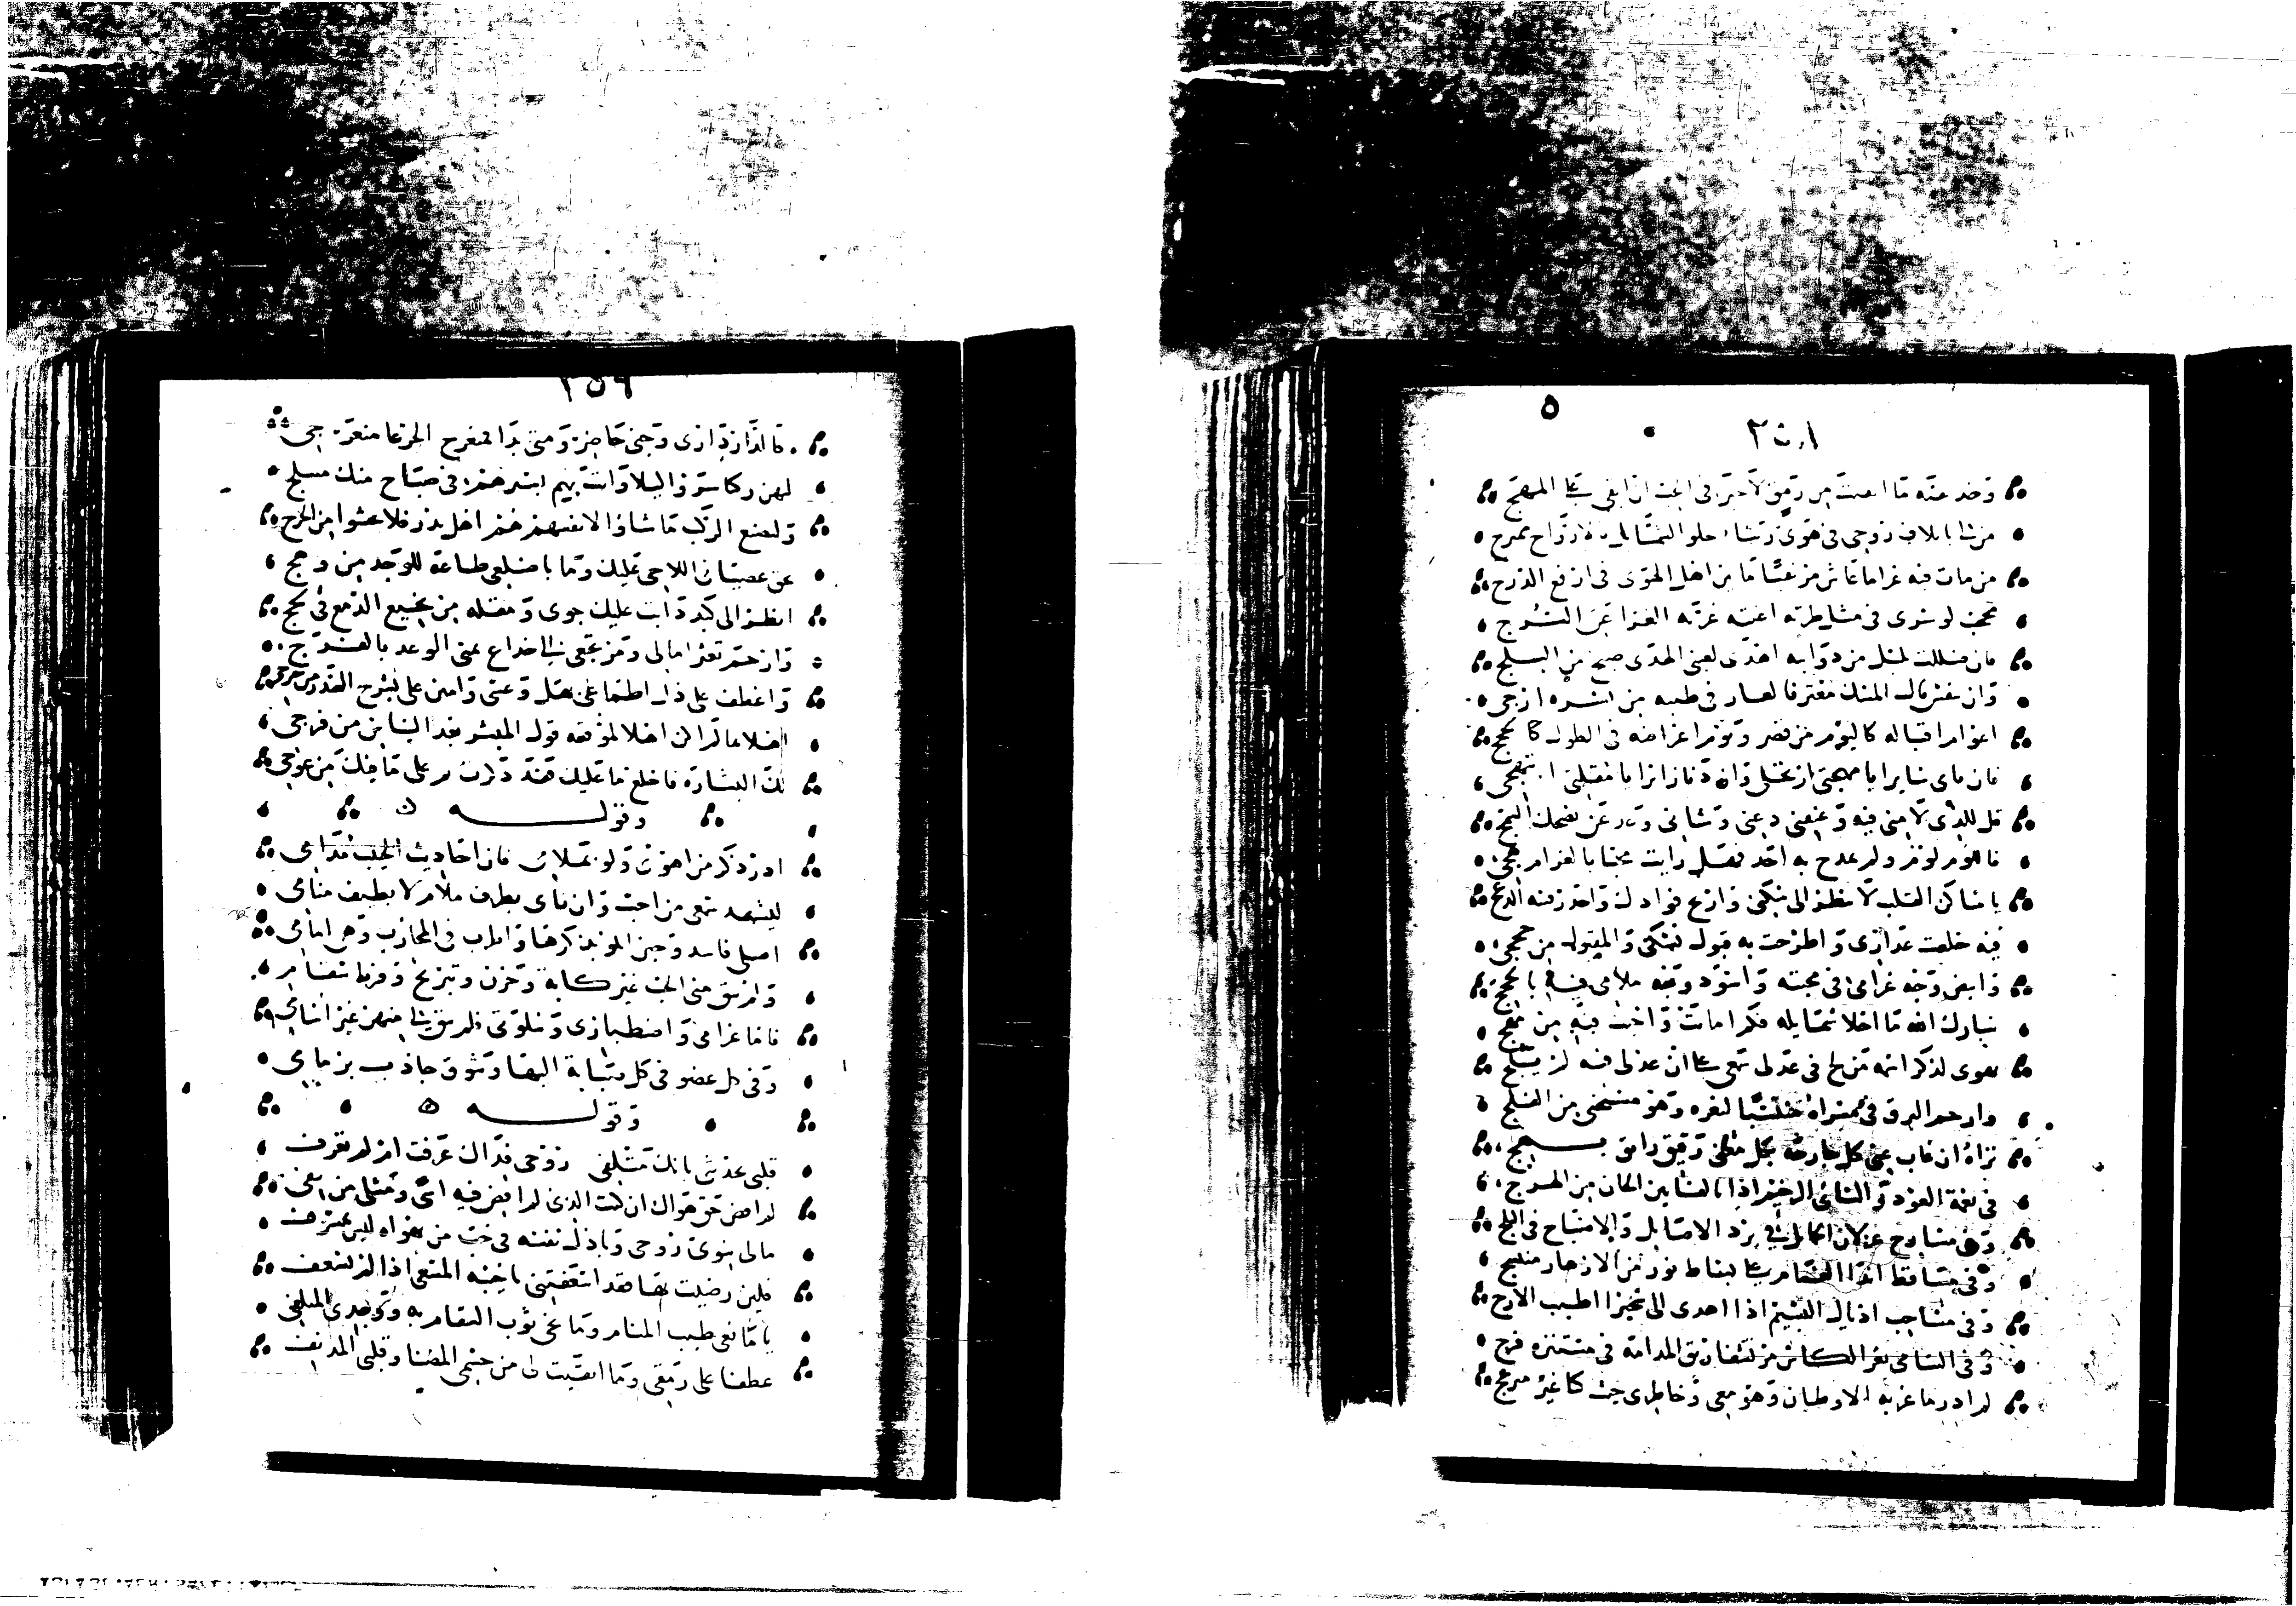 وخذ بقية ما ابقيت من رمق لا خير في الحب ان ابقى على المهج
من لي باتلاف روحي في هوى رشاء حلو الشمائل بالارواح ممتزج
من مات فيه غراما عاش مرتقيا ما بين اهل الهوى في ارفع الدرج
محجب لو سرى في مثل طرته اغنته غرته الغرا عن السرج
وان ضللت بليل من ذوايبه اهدى لعيني الهدى صبح من البلج
وان تنفس قال المسك معترفا لعارفي طيبه من نشره ارجي
اعوام اقباله كاليوم من قصر ويوم اعراضه في الطول كالحجج
فان ناى سايرا يا مهجتي ارتحلي وان دنا زايرا يا مقلتي ابتهجي
قل للذي لامني فيه وعنفني دعني وشاني وعد عن نصحك السمج
فاللوم لوم ولم يمدح به احد وهل رايت محبا بالغرام هجي
يا ساكن القلب لا تنظر الى سكني واربح فوادك واحذر فتنة الدعج
فيه خلعت عذاري واطرحت به قبول نسكي والمقبول من حججي
وابيض وجه غرامي في محبته واسود وجه ملامي فيه بالحجج
تبارك الله ما احلا شمايله فكم اماتت واحيت فيه من مهج
يهوى لذكر اسمه من لج في عذلي سمعي وان كان عذلي فيه لم يلج
وارحم البرق في مسراه منتسبا لثغره وهو مستحي من الفلج
تراه ان غاب عني كل جارحة في كل معنى لطيف رايق بهج
في نغمة العود والناي الرخيم اذا تالفا بين الحان من الهزج
وفي مسارح غزلان الخمايل في برد الاصايل والاصباح في البلج
وفي مساقط انداء الغمام على بساط نور من الازهار منتسج
وفي مساحب اذيال النسيم اذا اهدى الى سحيرا اطيب الارج
وفي التثامي ثغر الكاس مرتشفا ريق المدامة في مستنزه فرج
لم ادر ما غربة الاوطان وهو معي وخاطري حيث كنا غير منزعج
٢٥٩
فالدار داري وحبي حاضر ومتى بدا فمنعرج الجرعاء منعرجي
ليهن ركب سروا ليلا وانت بهم بسيرهم في صباح منك منبلج
وليصنع الركب ما شاؤا لانفسهم هم اهل بدر فلا يخشوا من الحرج
بحق عصياني اللاحي عليك وما باضلعي طاعة للوجد من وهج
انظر الى كبد ذابت عليك جوى ومقلة من نجيع الدمع في لجج
وارحم تعثر امالي ومرتجعي الى خداع تمني الوعد بالفرج
واعطف على ذل اطماعي بهل وعسى وامنن علي بشرح الصدر من حرجي
اهلا بما لم اكن اهلا لموقعه قول المبشر بعد الياس من فرجي
لك البشارة فاخلع ما عليك فقد ذكرت ثم على ما فيك من عوجي
وقولـــه
ادر ذكر من اهوى ولو بملامي فان احاديث الحبيب مدامي
ليشهد سمعي من احب وان ناى بطيف ملام لا بطيف منامي
اصلي فاشدو حين اتلو بذكرها واطرب في المحراب وهي امامي
ولم يبق مني الحب غير كابة وحزن وتبريح وفرط سقام
فاما غرامي واصطباري وسلوتي فلم يبق لي منهن غير اسامي
وفي كل عضو في كل صبابة اليها وشوق جاذب بزمامي
وقولـــه
قلبي يحدثني بانك متلفي روحي فداك عرفت ام لم تعرف
لم اقض حق هواك ان كنت الذي لم اقض فيه اسى ومثلي من يفي
مالي سوى روحي وباذل نفسه في حب من يهواه ليس بمسرف
فلين رضيت بها فقد اسعفتني يا خيبة المسعى اذا لم تسعف
يا مانعي طيب المنام ومانحي ثوب السقام به ووجدي المتلفي
عطفا على رمقي وما ابقيت لي من جسمي المضنا وقلبي المدنف